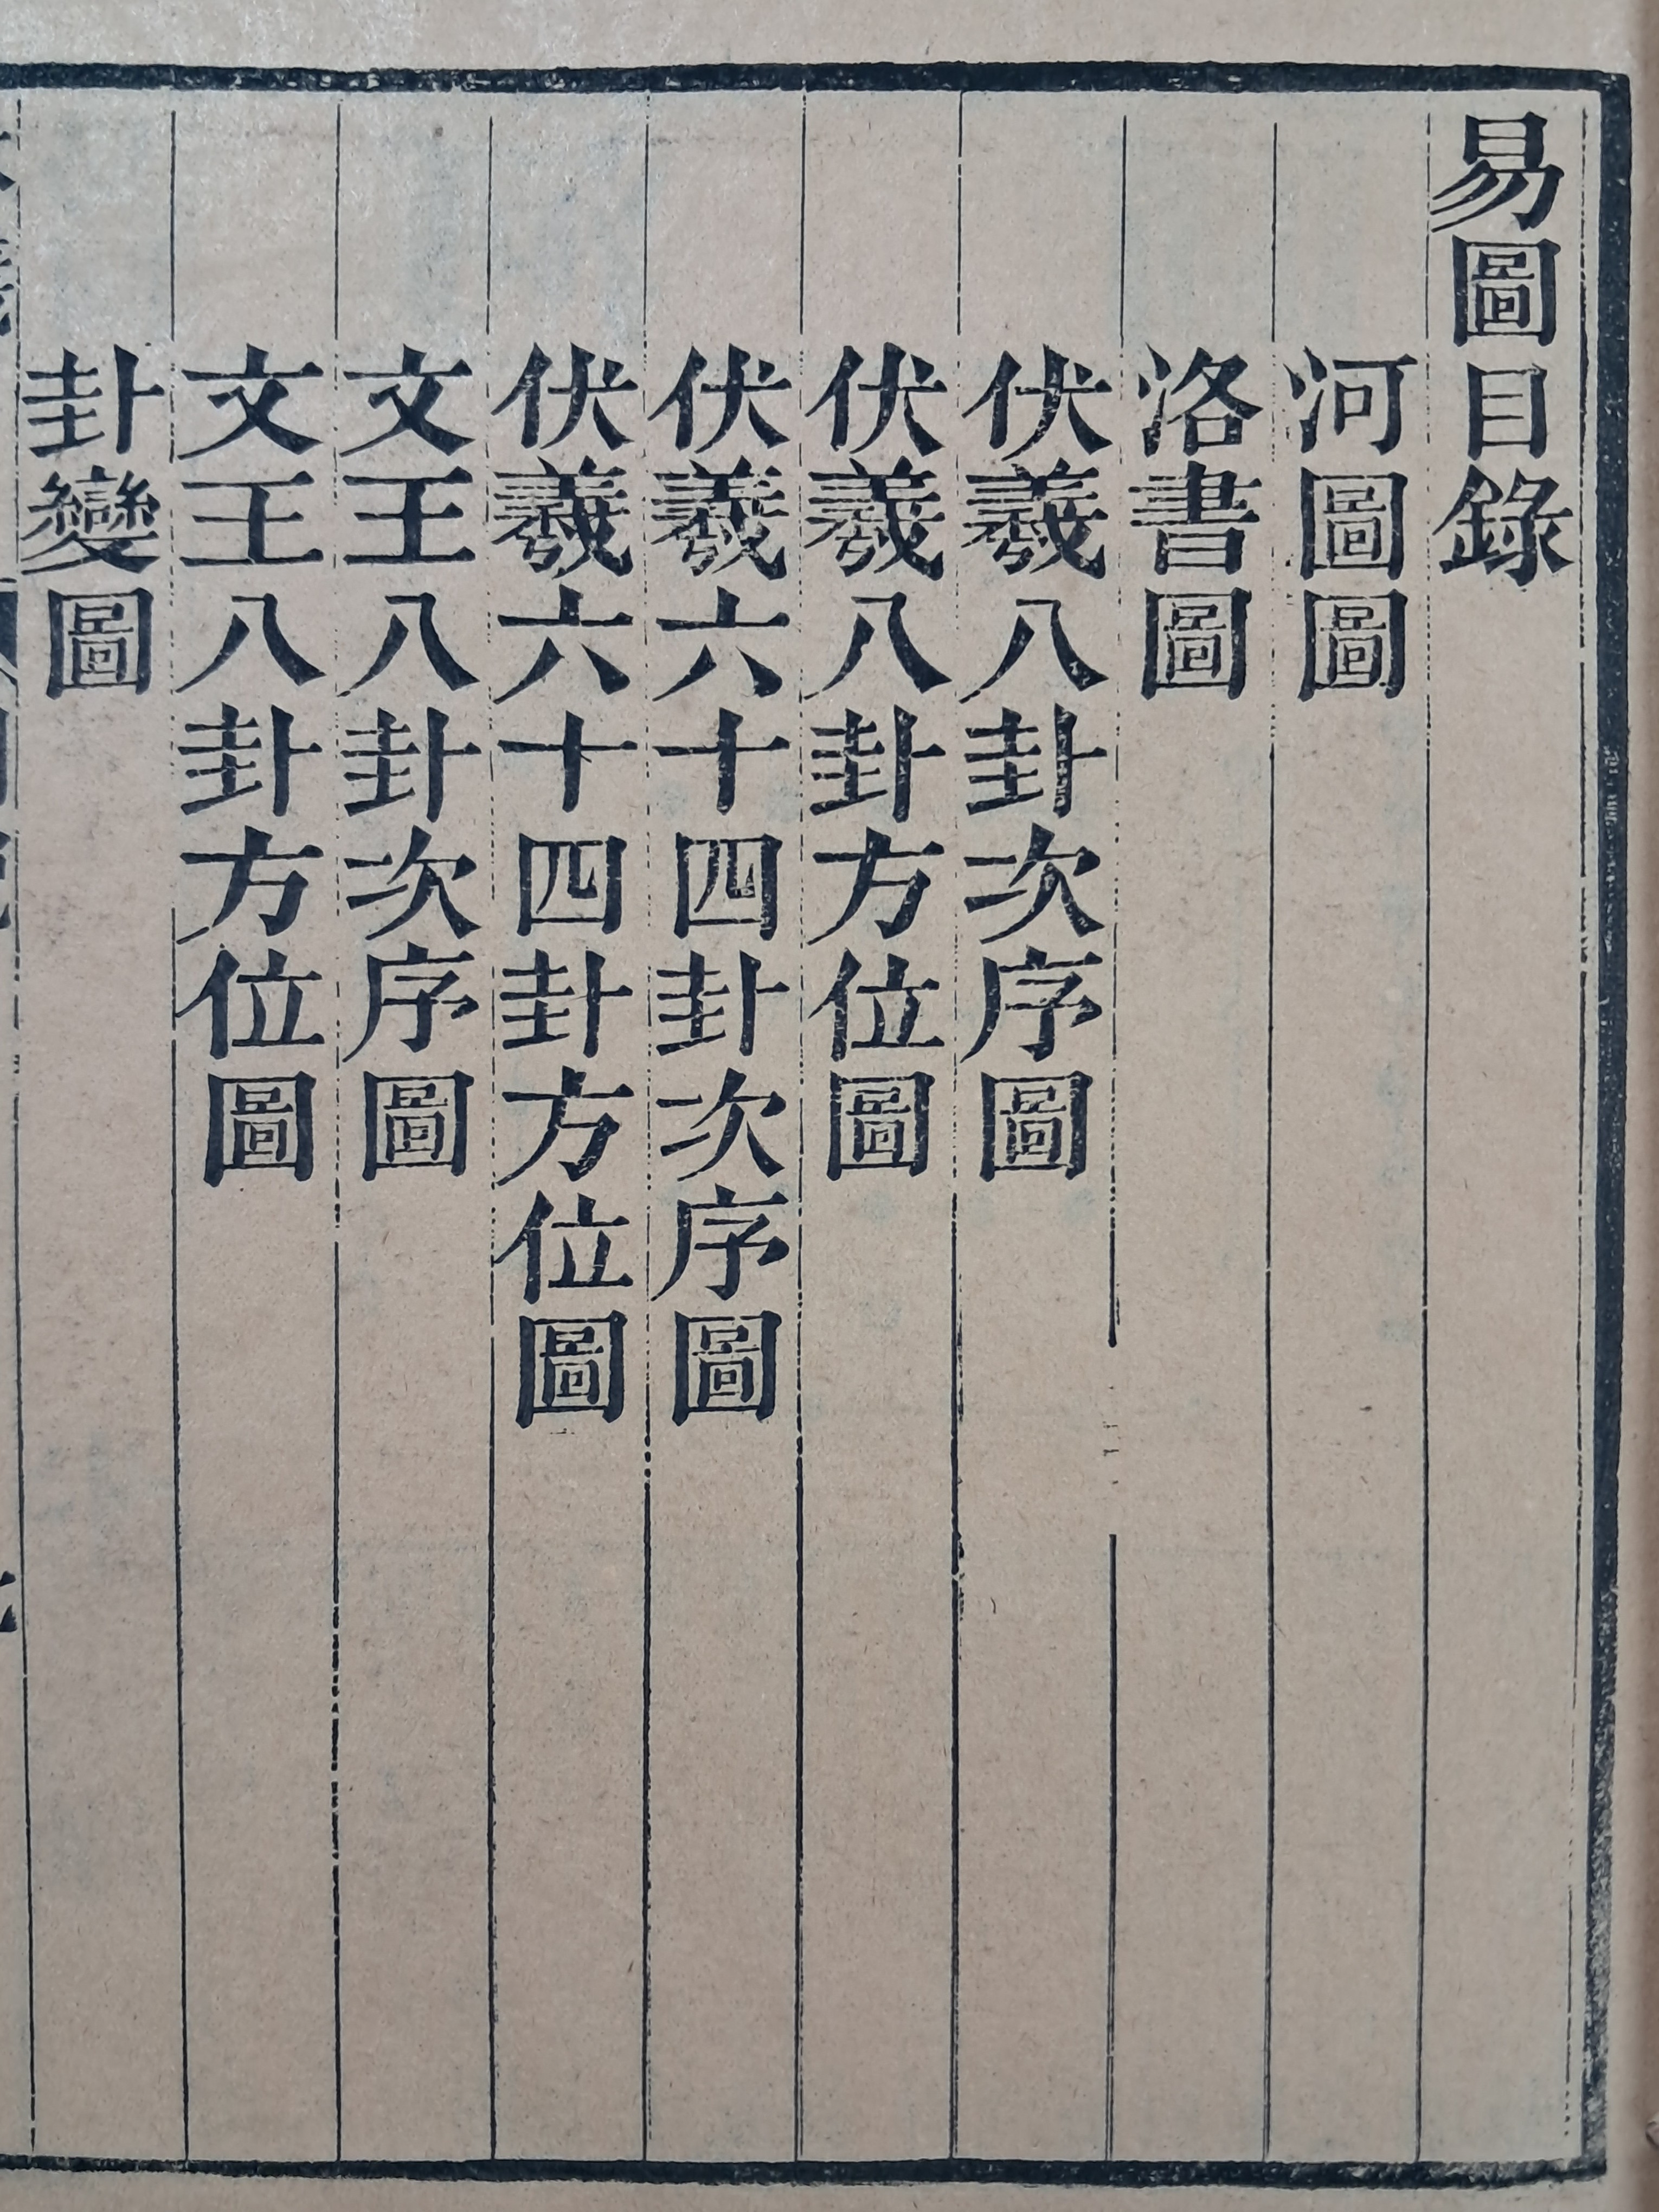 易圖目錄
河圖圖
洛書圖
伏羲八卦次序圖
伏羲八卦方位圖
伏羲六十四卦次序圖
伏羲六十四卦方位圖
文王八卦次序圖
文王八卦方位圖
卦變圖